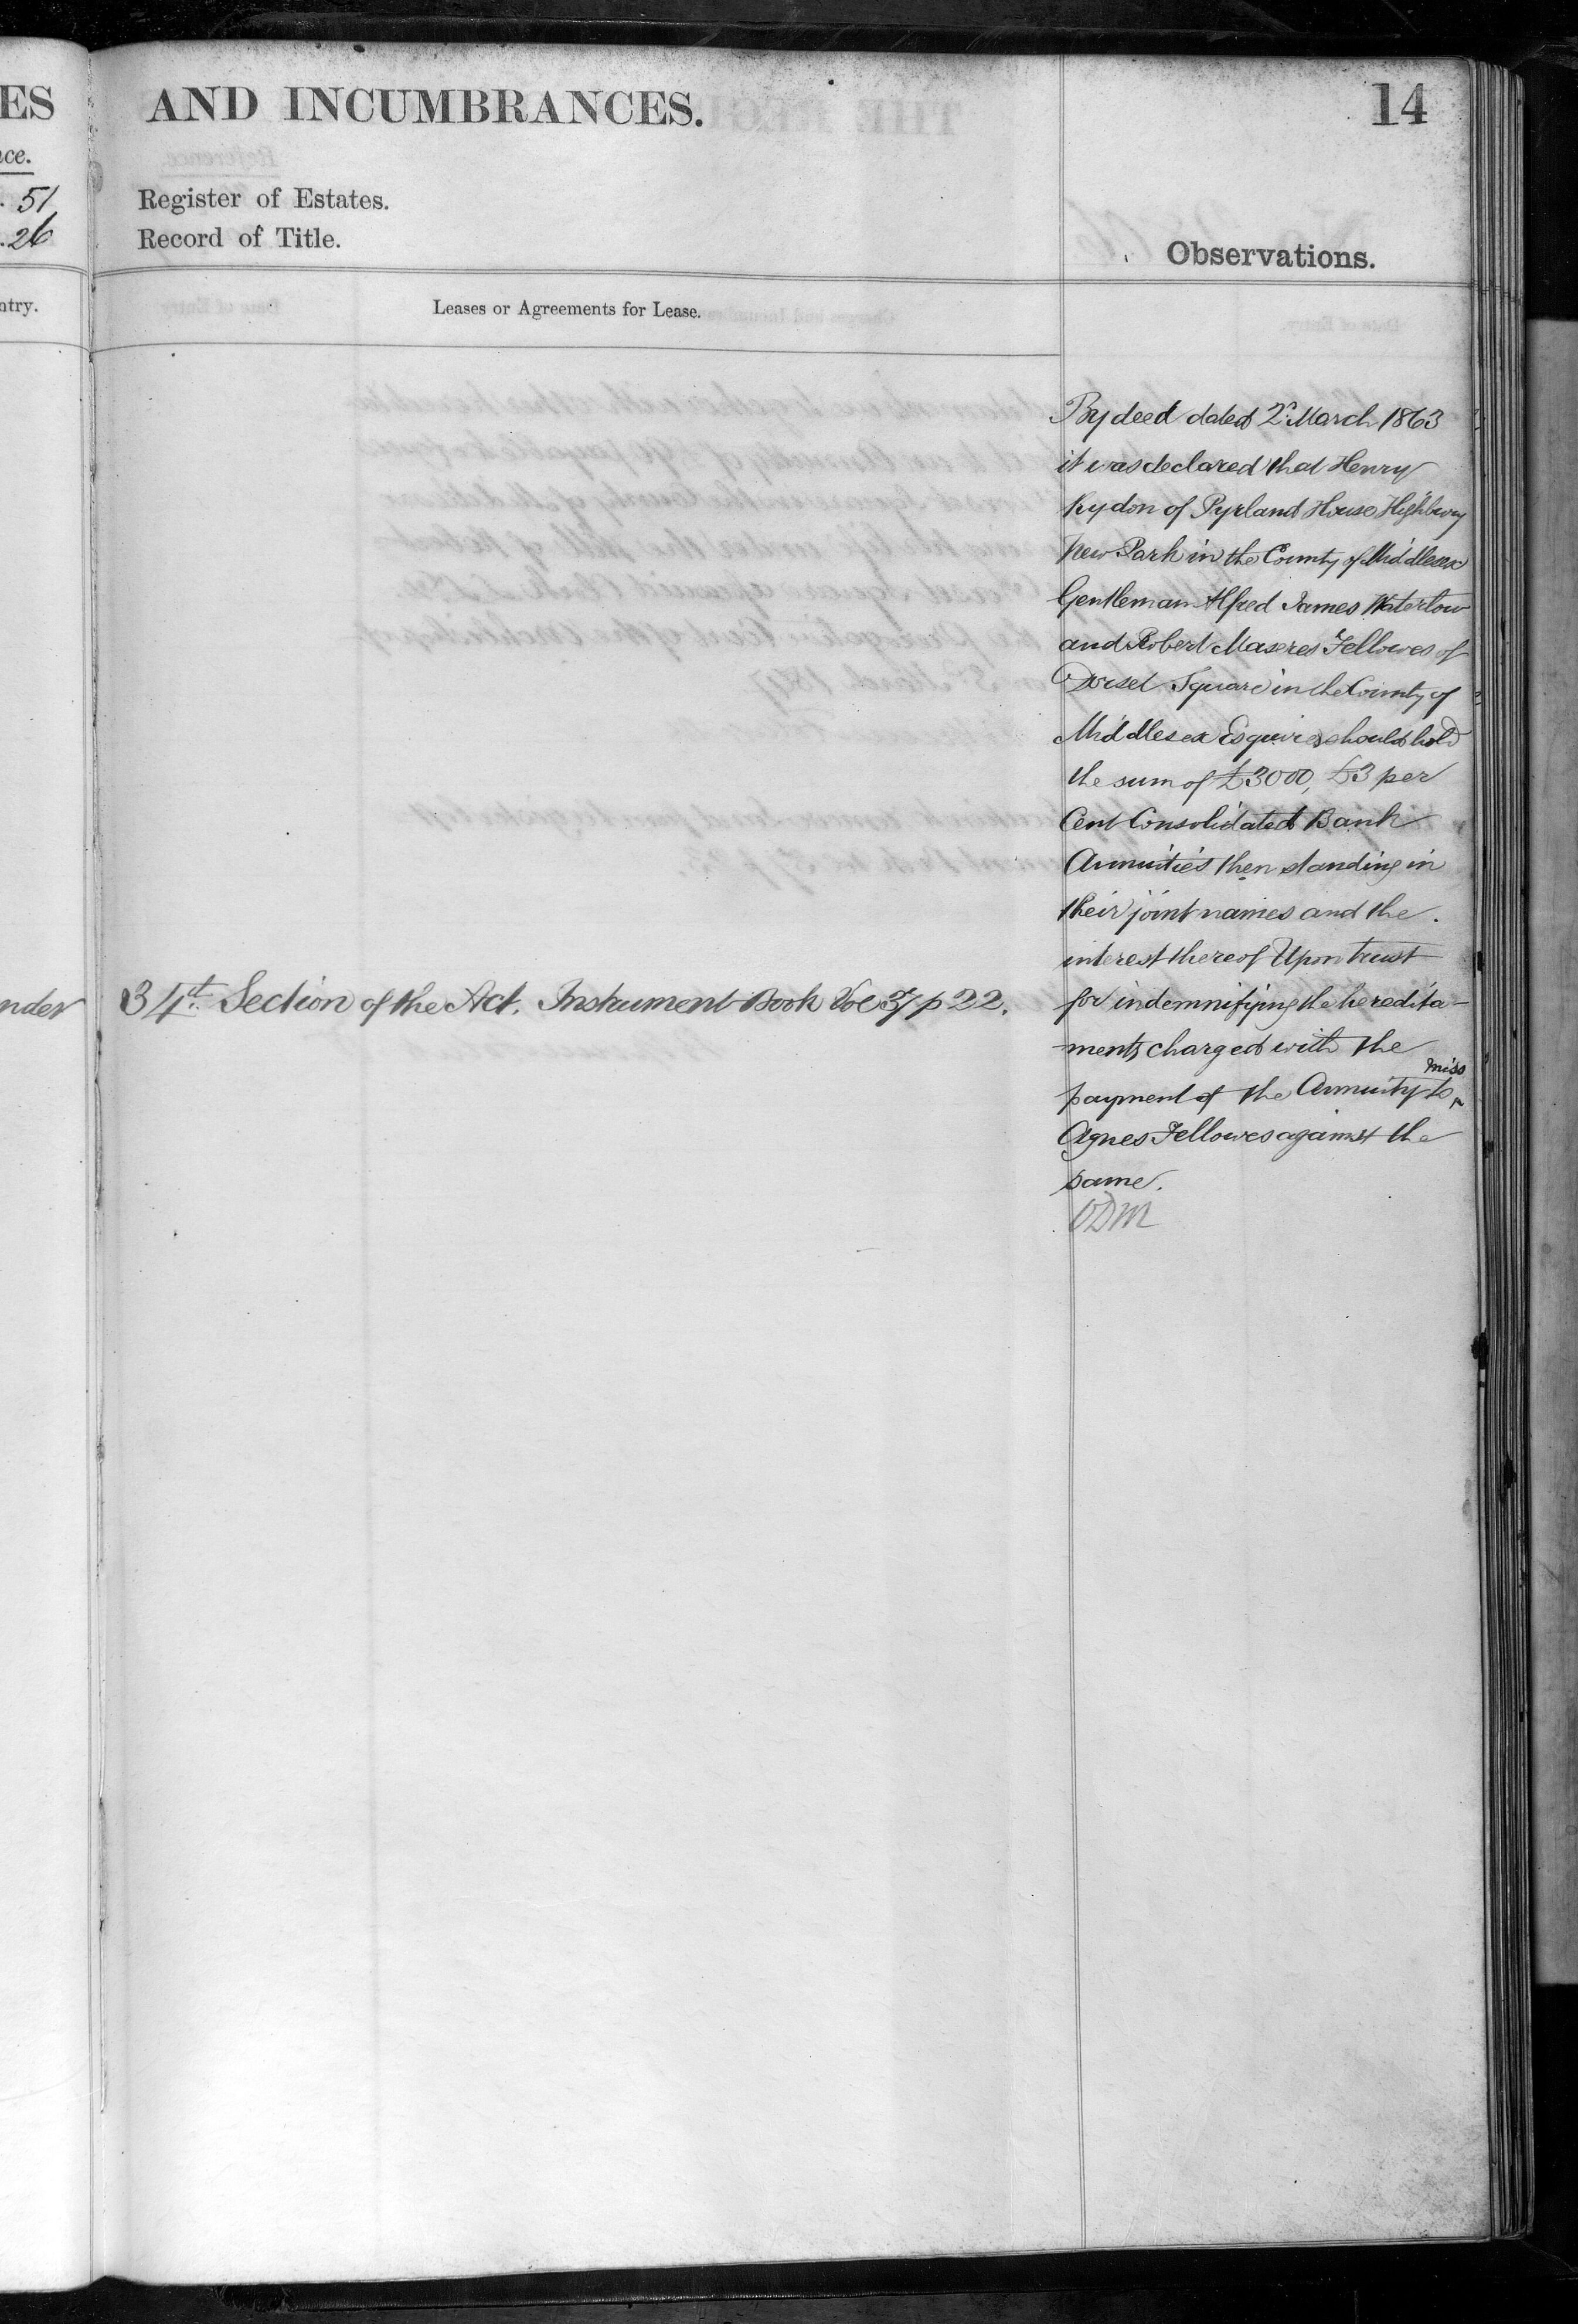 ES
AND INCUMBRANCES.
14
ce.
51
Register of Estates.
26
Record of Title.
Observations.
ntry.
Leases or Agreements for Lease.
By deed dated 2d March 1863
it was declared that Henry
Rydon of Pyrland House Highbury
New Park in the County of Middlesex
Gentleman Alfred James Waterlow
and Robert Maseres Fellowes of
Dorset Square in the County of
Middlesex Esquires should hold
the sum of £3000, £3 per
Cent Consolidated Bank
Annuities then standing in
their joint names and the
interest thereof Upon trust
nder 34th Section of the Act. Instrument Book Vol 37 p 22.
for indemnifying the heredita-
ments charged with the
payment of the Annuity to Miss
Agnes Fellowes against the
same.
ODM